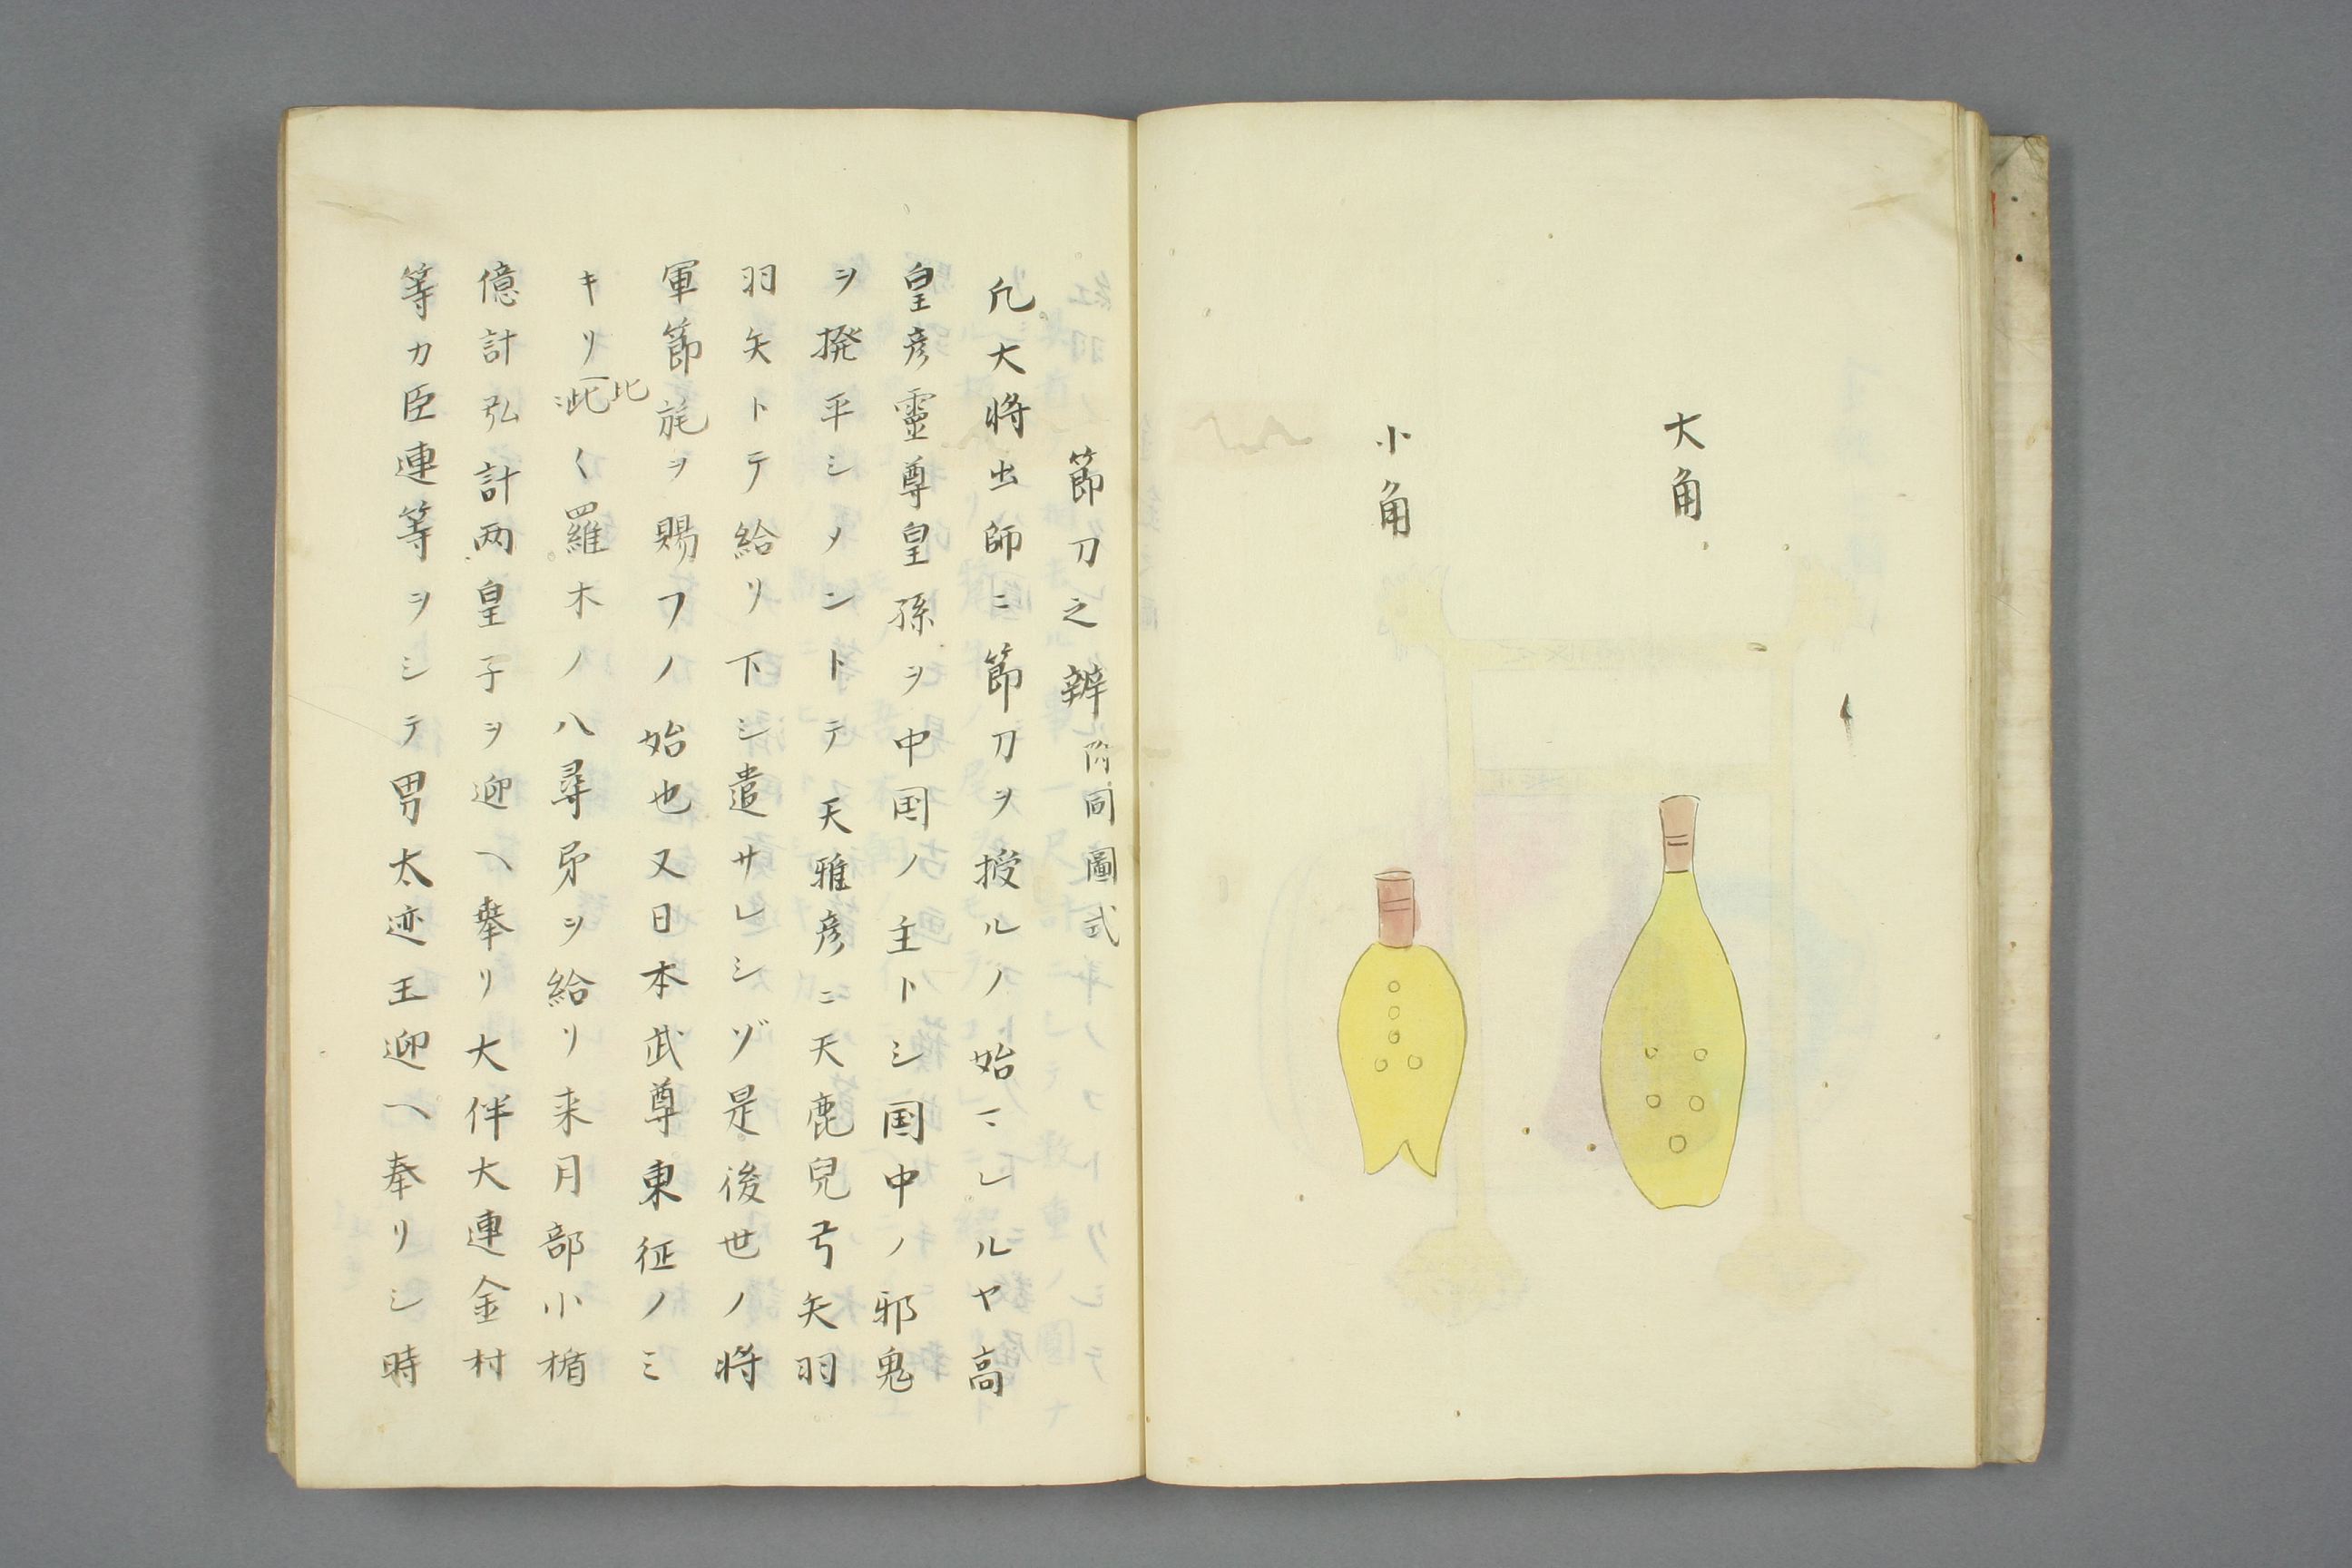 大角
小角
節刀之辨 附同圖式
凡大将出師ニ節刀ヲ授ルノ始マレルヤ高
皇彦靈尊皇孫ヲ中国ノ主トシ国中ノ邪鬼
ヲ撥平シメントテ天雅彦ニ天鹿兒弓矢羽
羽矢トテ給リ下シ遣サレシゾ是後世ノ将
軍節旄ヲ賜フノ始也又日本武尊東征ノミ
キリ比々羅木ノ八尋矛ヲ給リ来月部小楯
億計弘計両皇子ヲ迎ヘ奉リ大伴大連金村
等カ臣連等ヲシテ男太迹王迎ヘ奉リシ時